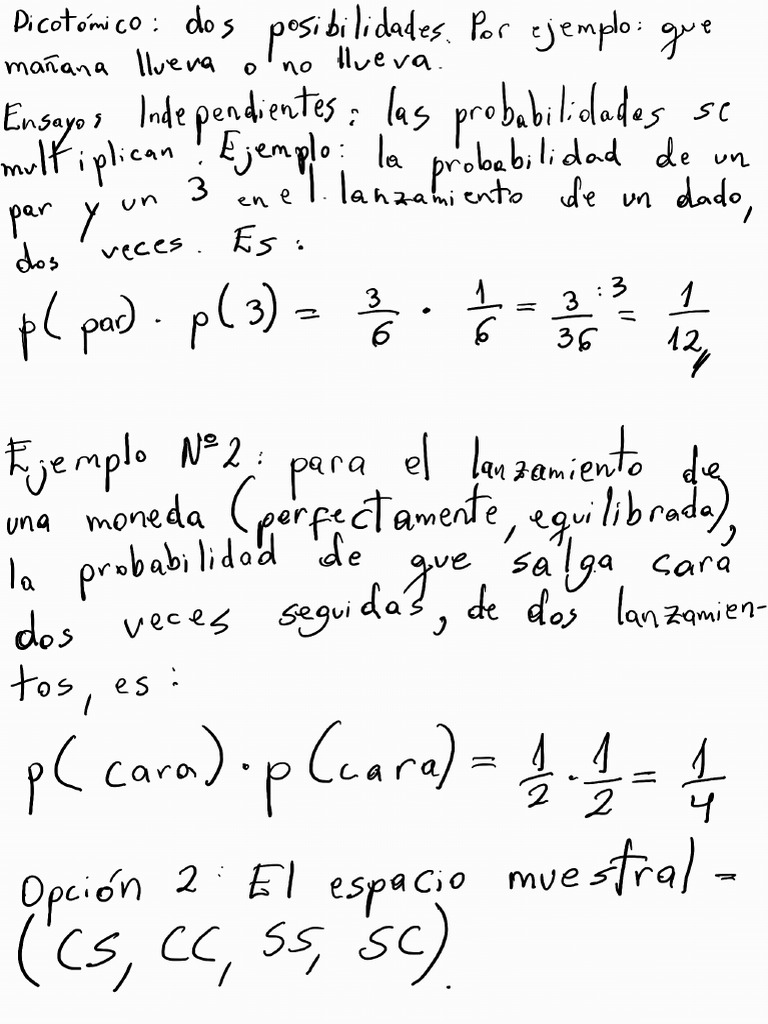 Dicotómico: dos posibilidades. Por ejemplo: que
mañana llueva o no llueva.
Ensayos Independientes: las probabilidades se
multiplican. Ejemplo: la probabilidad de un
par y un 3 en el lanzamiento de un dado,
dos veces. Es:
p(par) · p(3) = 3/6 · 1/6 = 3/36 :3 = 1/12
Ejemplo Nº2: para el lanzamiento de
una moneda (perfectamente, equilibrada),
la probabilidad de que salga cara
dos veces seguidas, de dos lanzamien-
tos, es:
p(cara) · p(cara) = 1/2 · 1/2 = 1/4
Opción 2: El espacio muestral =
(CS, CC, SS, SC).